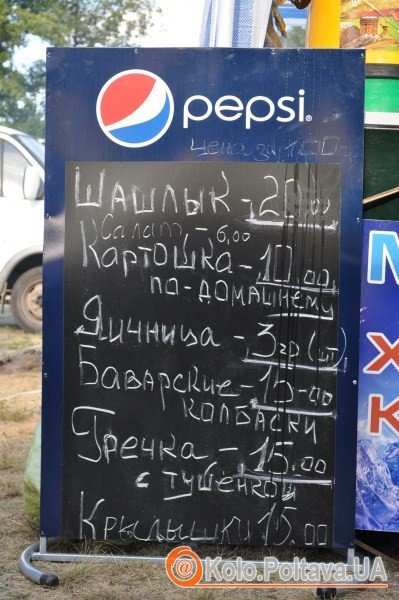 pepsi
Цена за 100
Шашлык - 20.00
Салат - 6,00
Картошка - 10.00
по-домашнему
Яичница - 3гр (шт)
Баварские - 15-00
колбаски
Гречка - 15.00
с тушенкой
Крылышки 15.00
М
Х
К
@Kolo.Poltava.UA